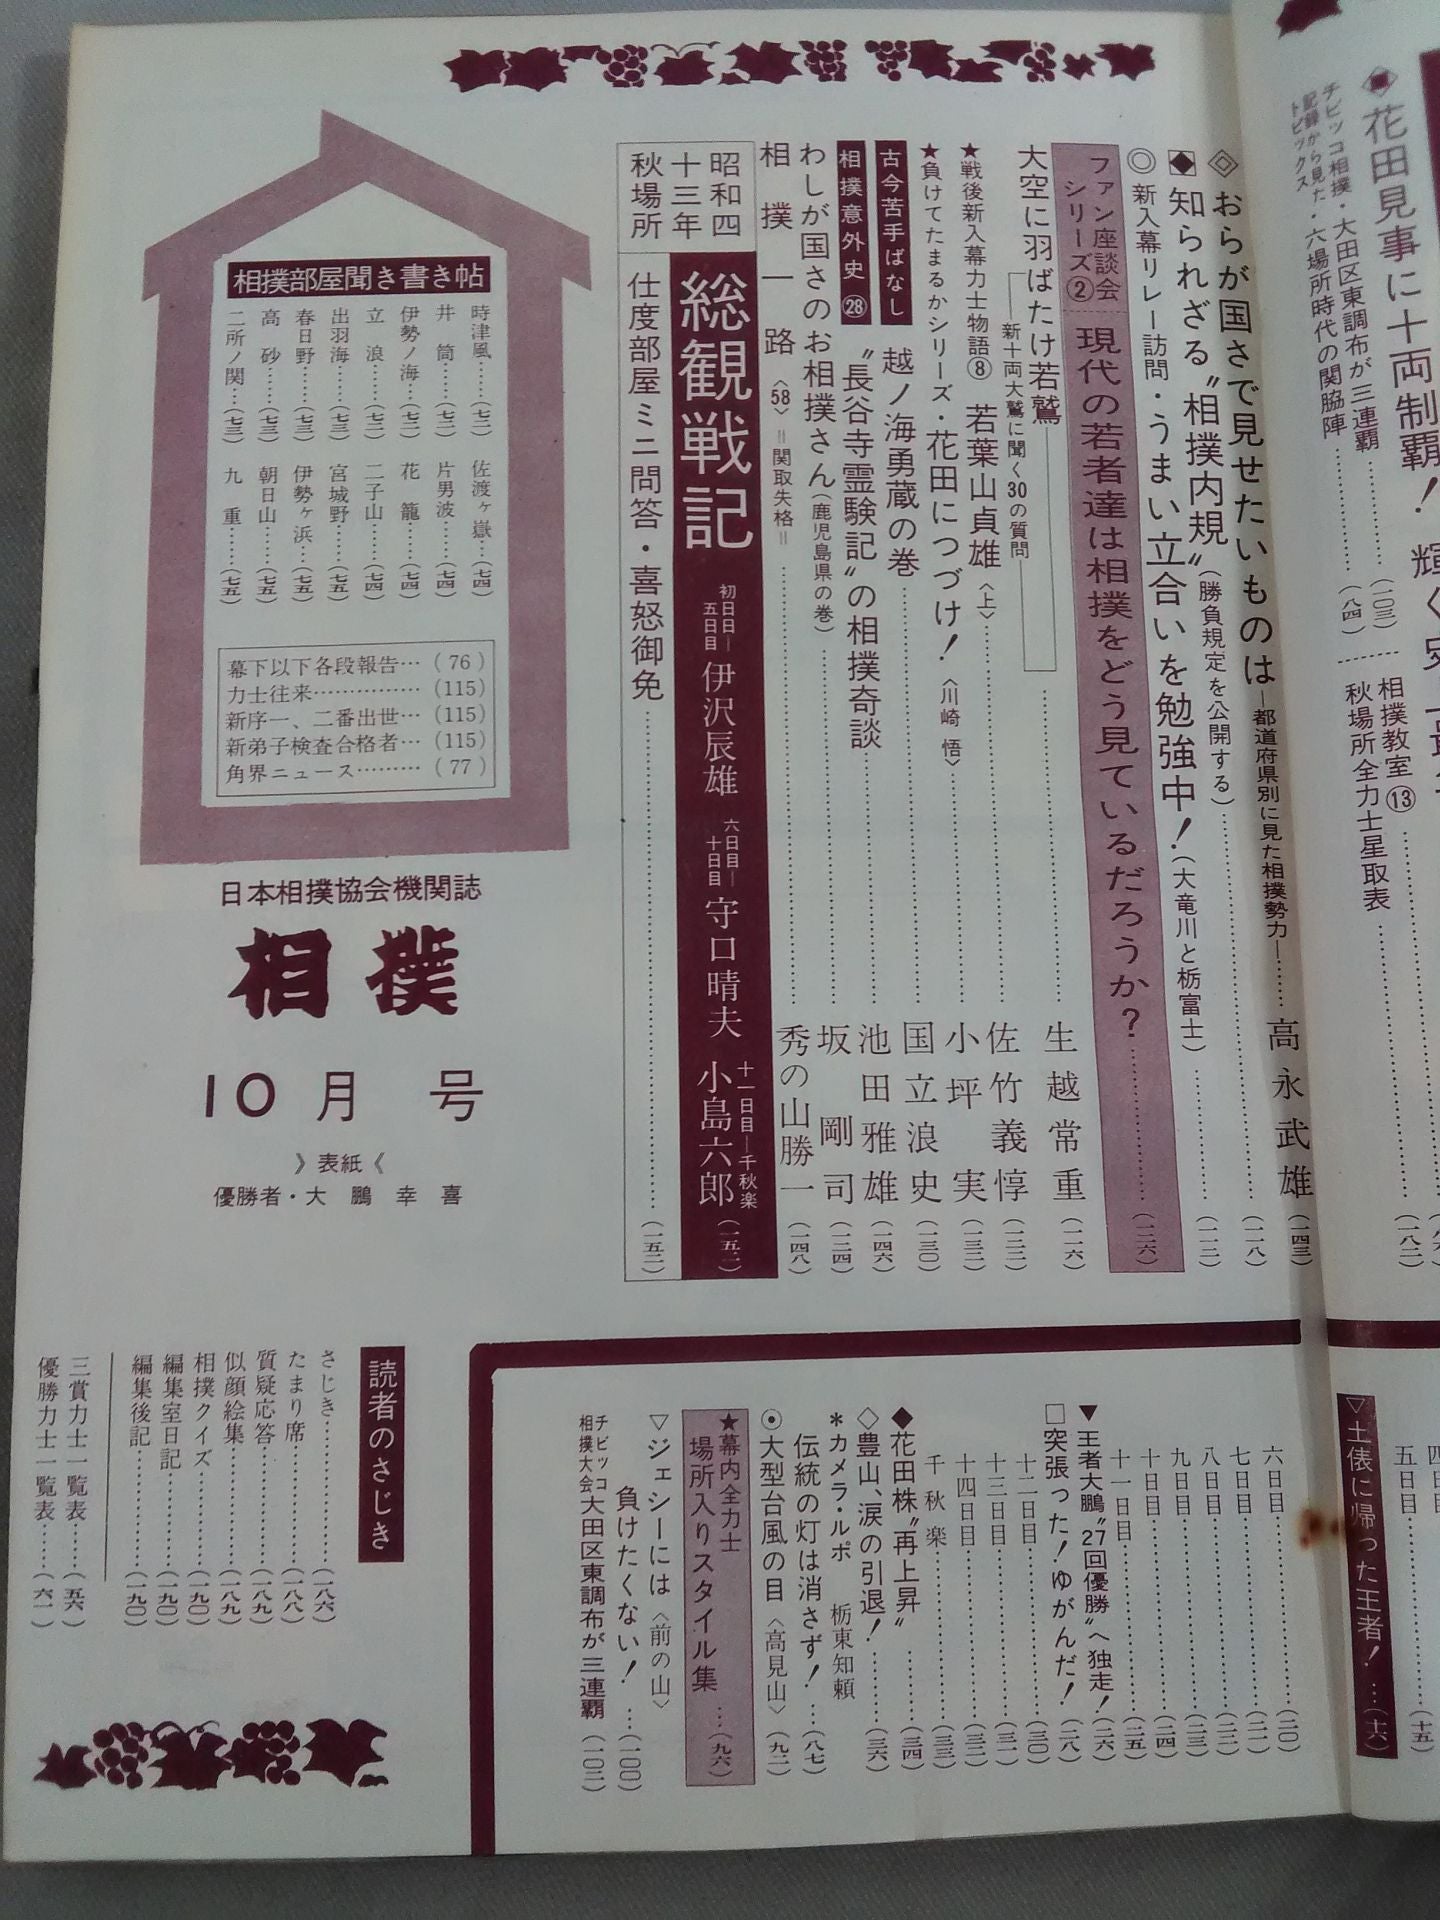 ◈花田見事に十両制覇！
チビッコ相撲・大田区東調布が三連覇……………(一〇三)
記録から見た・六場所時代の関脇陣……………(八四)
トピックス
相撲教室⑬
秋場所全力士星取表
◇おらが国さで見せたいものは―都道府県別に見た相撲勢力―……高永武雄(一四三)
◆知られざる“相撲内規”(勝負規定を公開する)……(一一八)
◎新入幕リレー訪問・うまい立合いを勉強中！(大竜川と栃富士)……(一一二)
ファン座談会シリーズ② 現代の若者達は相撲をどう見ているだろうか？……(一二六)
大空に羽ばたけ若鷲―新十両大鷲に聞く30の質問……生越常重(一一六)
★戦後新入幕力士物語⑧ 若葉山貞雄〈上〉……佐竹義惇(一二二)
★負けてたまるかシリーズ・花田につづけ！〈川崎 悟〉……小坪実(一三二)
古今苦手ばなし 越ノ海勇蔵の巻……国立浪史(一三〇)
相撲意外史㉘ “長谷寺霊験記”の相撲奇談……池田雅雄(一四六)
わしが国さのお相撲さん(鹿児島県の巻)……坂剛司(一二四)
相撲一路〈58〉＝関取失格＝……秀の山勝一(一四八)
昭和四十三年秋場所
総観戦記 初日―五日目 伊沢辰雄 六日目―十日目 守口晴夫 十一日目―千秋楽 小島六郎(一五二)
仕度部屋ミニ問答・喜怒御免……(一五二)
相撲部屋聞き書き帖
時津風……(七二)
井筒……(七二)
伊勢ノ海…(七二)
立浪……(七三)
出羽海……(七三)
春日野……(七三)
高砂……(七三)
二所ノ関…(七三)
佐渡ヶ嶽…(七四)
片男波……(七四)
花籠……(七四)
二子山……(七四)
宮城野……(七五)
伊勢ヶ浜…(七五)
朝日山……(七五)
九重……(七五)
幕下以下各段報告…(76)
力士往来……………(115)
新序一、二番出世…(115)
新弟子検査合格者…(115)
角界ニュース………(77)
日本相撲協会機関誌
相撲
10月号
》表紙《
優勝者・大鵬幸喜
▽土俵に帰った王者！…(十六)
五日目……(十五)
六日目……(二〇)
七日目……(二一)
八日目……(二二)
九日目……(二三)
十日目……(二四)
十一日目……(二五)
▼王者大鵬“27回優勝”へ独走！(二六)
□突張った！ゆがんだ！(二八)
十二日目……(三〇)
十三日目……(三一)
十四日目……(三二)
千秋楽……(三三)
◆花田株“再上昇”……(三四)
◇豊山、涙の引退！……(三六)
＊カメラ・ルポ 栃東知頼
伝統の灯は消さず！…(八七)
⊙大型台風の目〈高見山〉(九二)
★幕内全力士場所入りスタイル集…(九六)
▽ジェシーには〈前の山〉
負けたくない！…(一〇〇)
チビッコ相撲大会 大田区東調布が三連覇(一〇二)
読者のさじき
さじき……(一八六)
たまり席……(一八八)
質疑応答……(一八九)
似顔絵集……(一八九)
相撲クイズ……(一九〇)
編集室日記……(一九〇)
編集後記……(一九〇)
三賞力士一覧表……(五六)
優勝力士一覧表……(六一)